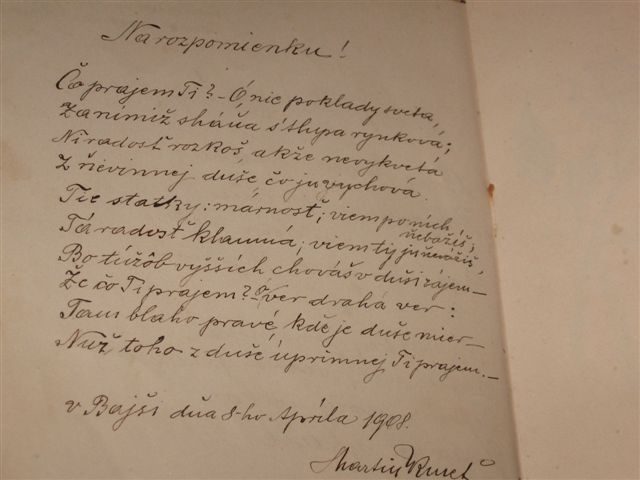 Na rozpomienku!
Čo prajem Ti? – Ó nie poklady sveta,
Za nimiž sháňa s' tlupa rynková;
Ni radosť rozkoš, akže nevykvetá
Z nevinnej duše čo ju vychová.
Tie statky: márnosť; viem po nich
nebažíš;
Tá radosť klamná; viem ty ju nevážiš,
Bo túžôb vyšších chováš v duši zájem –
Že čo Ti prajem? Ver drahá ver:
Tam blaho pravé, kde je duše mier –
Nuž toho z duše úprimnej Ti prajem. –
v Bajši dňa 8-ho Apríla 1908.
Martin